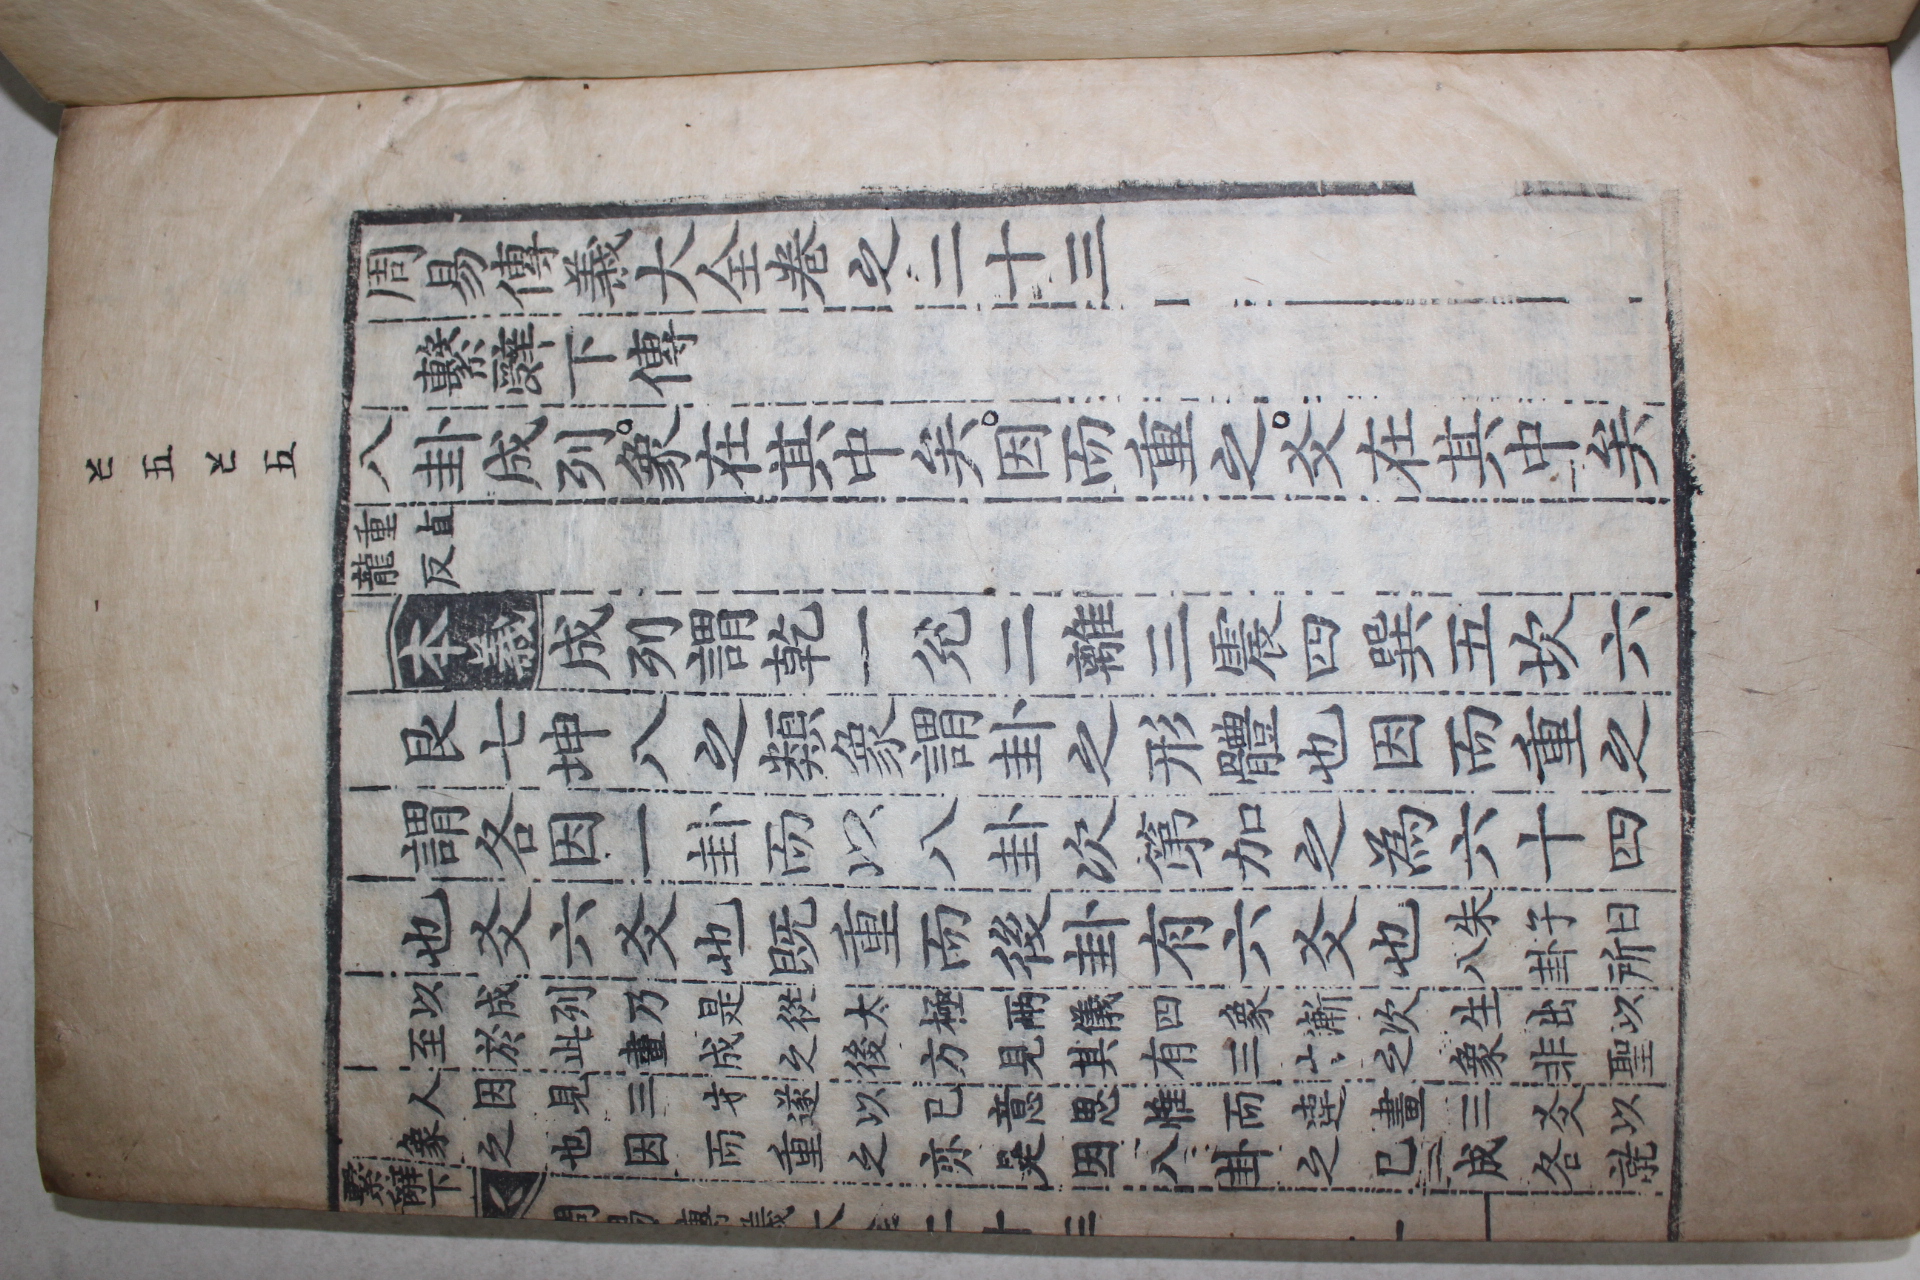 五 五
周易傳義大全卷之二十三
繫辭下傳
八卦成列。象在其中矣。因而重之。爻在其中矣
重直
龍反
本義 成列謂乾一兌二離三震四巽五坎六
艮七坤八之類象謂卦之形體也因而重之
謂各因一卦而以八卦次第加之為六十四
也爻六爻也既重而後卦有六爻也
朱子曰
八卦所
以成列乃是從太極兩儀四象漸次生出以
至於此畫成之後方見其有三才之象非聖
人因見三才遂以已意思惟而連畫三爻以
象之也因而重之亦是因八卦之已成各就
繫辭下 周易傳義大全二十三 一